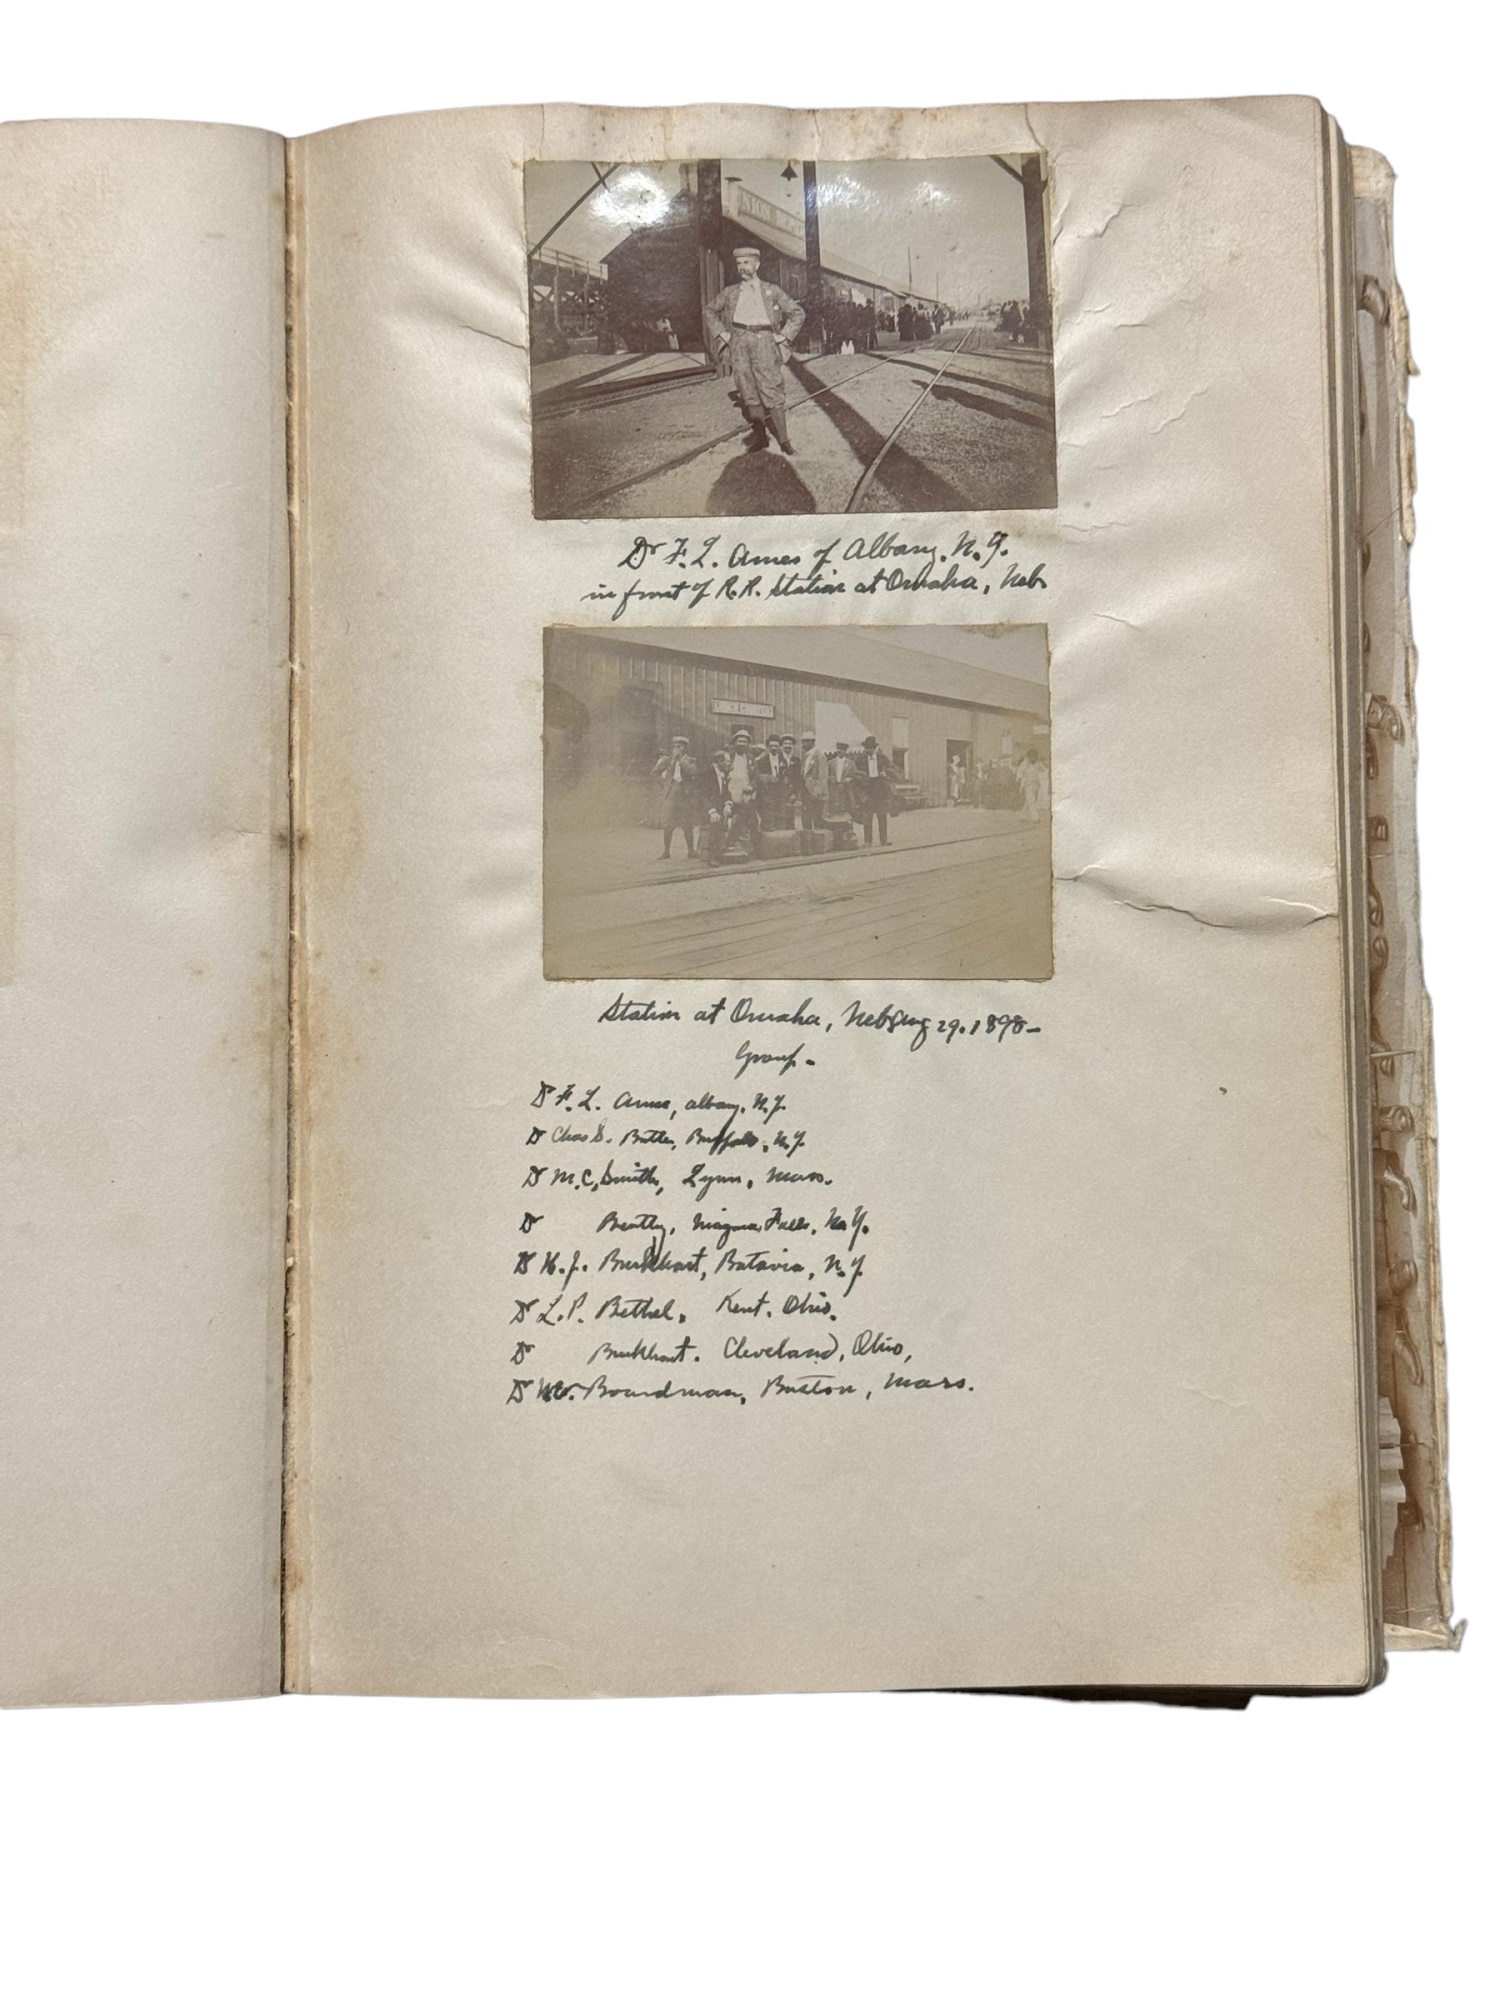 NION
Dr F. L. Ames of Albany, N. Y.
in front of R. R. Station at Omaha, Neb.
Station at Omaha, Neb Aug 29. 1898-
Group-
Dr F. L. Ames, Albany, N. Y.
Dr Chas S. Butler, Buffalo, N. Y.
Dr M. C, Smith, Lynn, Mass.
Dr Beatty, Niagara Falls, N. Y.
Dr H. J. Burkhart, Batavia, N. Y.
Dr L. P. Bethel, Kent, Ohio.
Dr Burkhart. Cleveland, Ohio,
Dr Boardman, Boston, Mass.